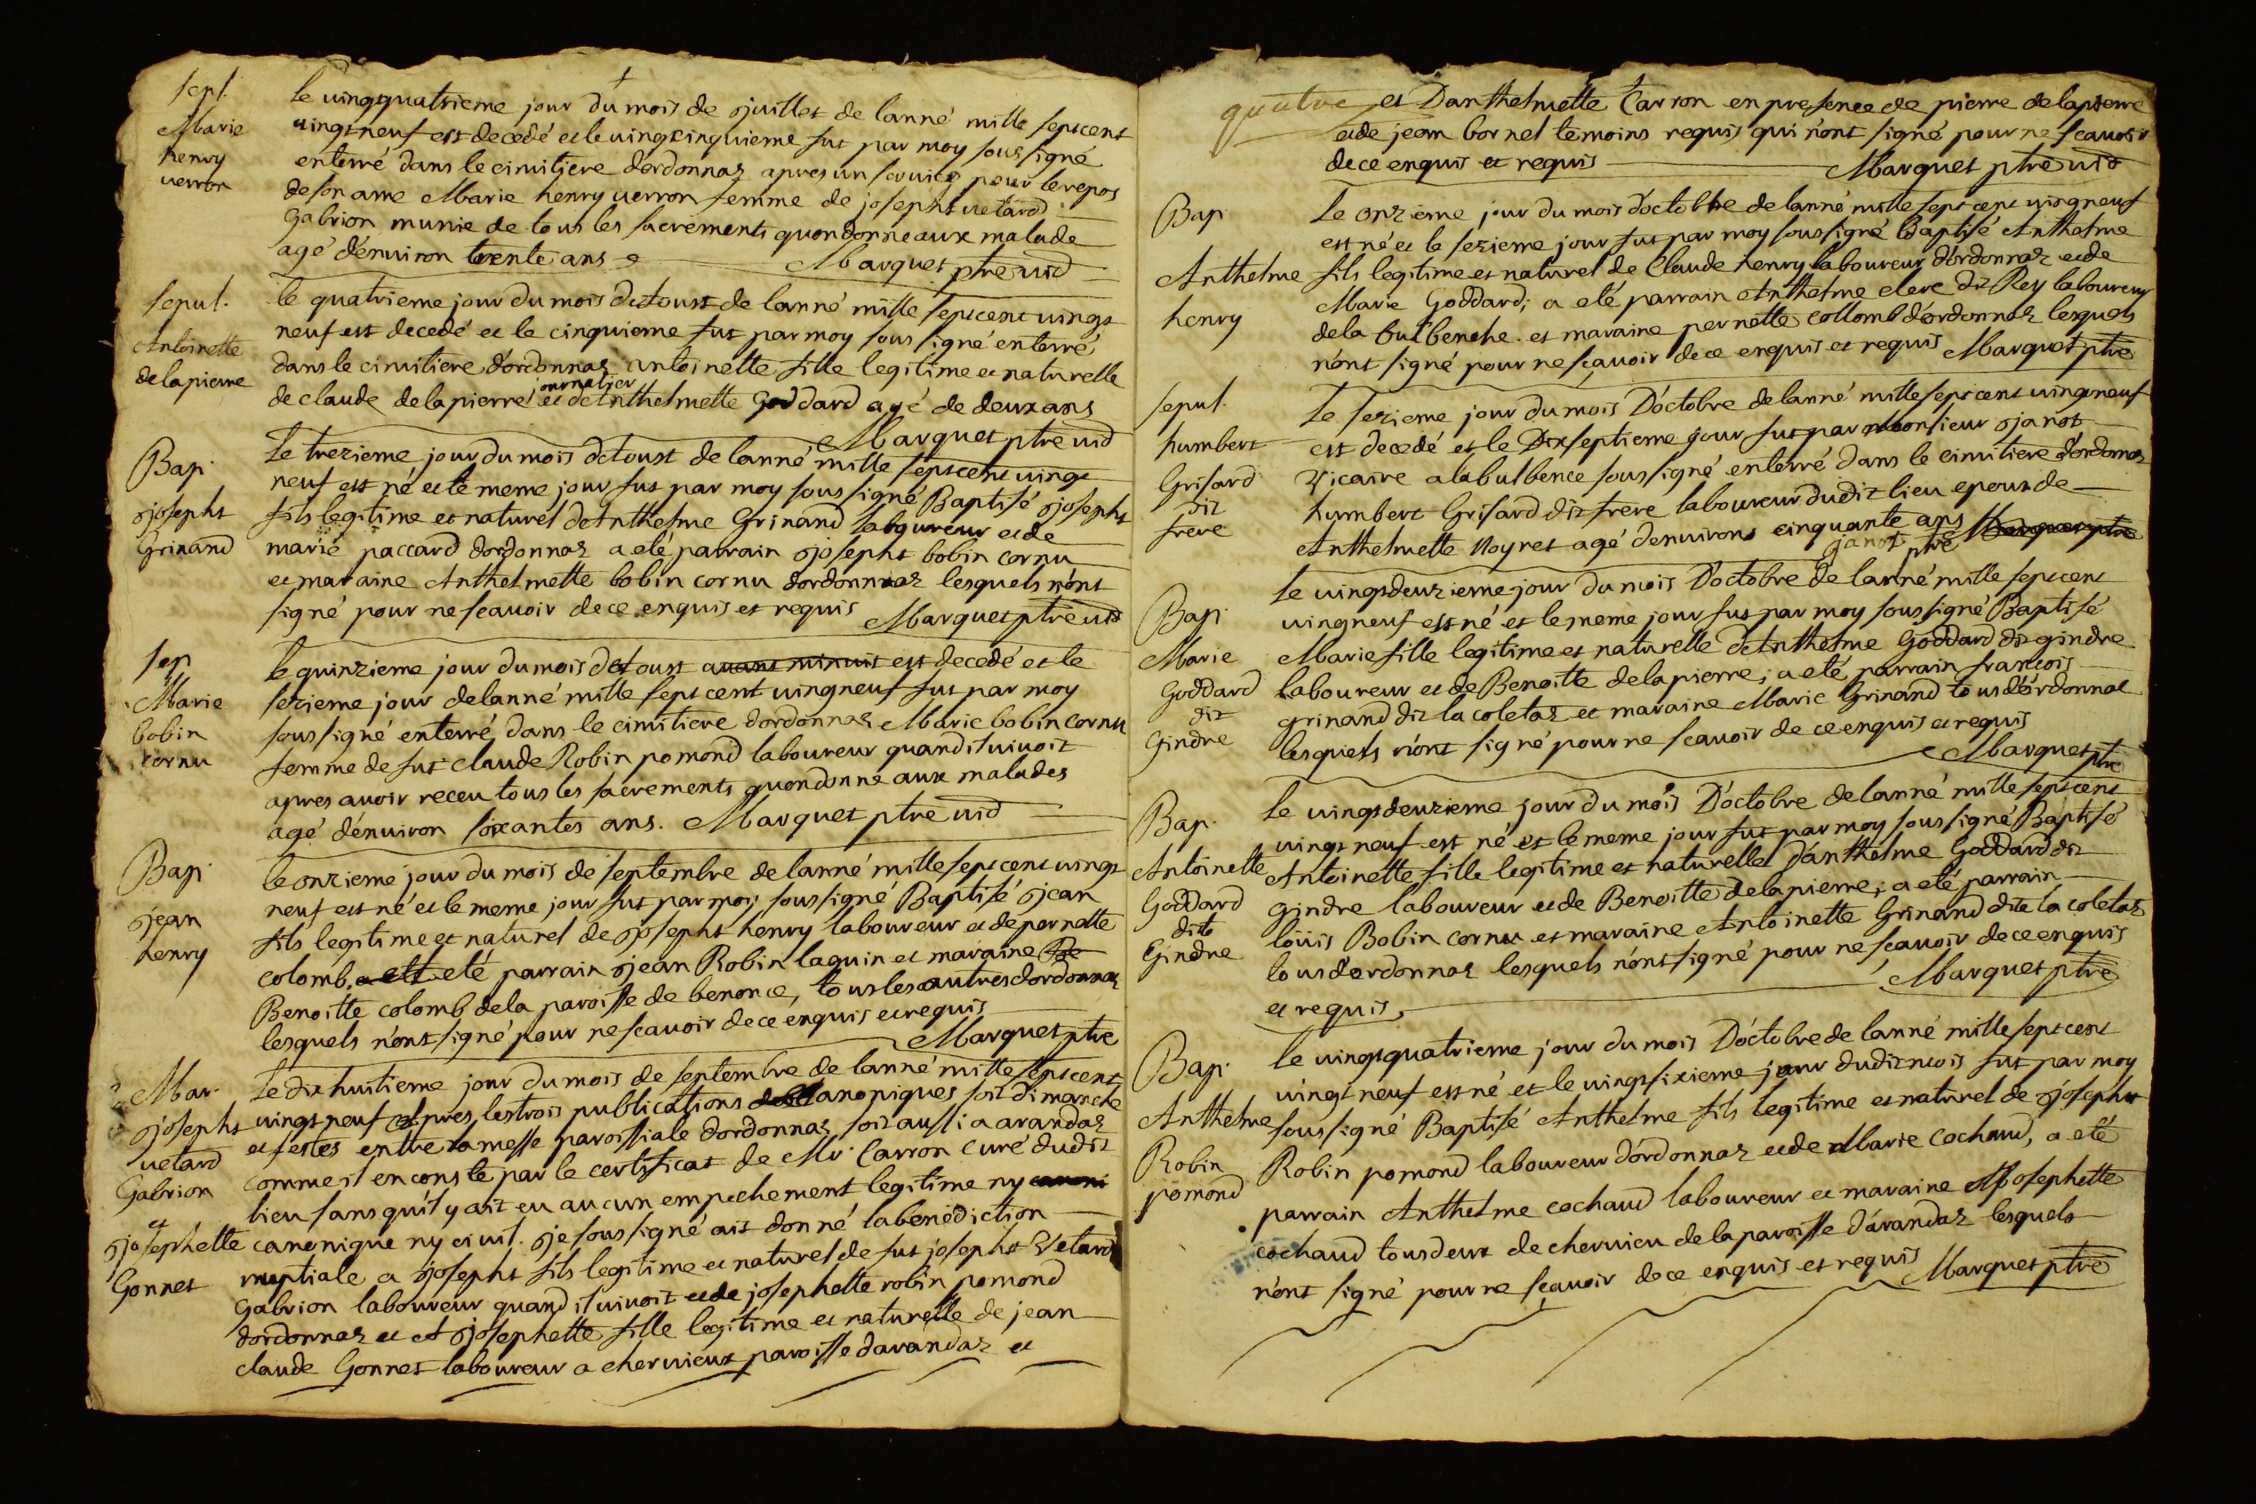 sepl.
Marie
henry
verron
le vingtquatrieme jour du mois de sjuillet de lanné mille septcent
vingtneuf est decedé et le vingtcinquieme fut par moy sous signé
enterré dans le cimitiere dordonnaz apres un service pour le repos
de son ame Marie henry verron femme de josepht vetard
Gabrion munie de tous les sacrements quondonne aux malade
agé dénviron trente ans Marquet ptre vid
sepul.
Antoinette
delapierre
le quatrieme jour du mois daoust de lanné mille septcent vingt
neuf est decedé et le cinquieme fut par moy sous signé enterré
dans le cimitiere dórdonnaz antoinette fille legitime et naturelle
journalier
de claude delapierre et dAnthelmette Goddard agé de deux ans
Marquet ptre vid
Bap
sjosepht
Grinand
Le trezieme jour du mois daoust de lanné mille septcent vingt
neuf est né et le meme jour fut par moy sous signé Baptisé sjosepht
fils legitime et naturel dAnthelme Grinand laboureur et de
marie paccard dordonnaz a eté parrain sjosepht bobin cornu
et maraine Anthelmette bobin cornu dordonnaz lesquels nónt
signé pour ne scavoir de ce enquis et requis Marquet ptre vid
sep
Marie
bobin
cornu
le quinzieme jour du mois daoust avant minuit est decedé et le
sezieme jour delanné mille sept cent vingneuf fut par moy
sous signé enterré dans le cimitiere dordonnaz Marie bobin cornu
femme de fut claude Robin pomond laboureur quand il vivoit
apres avoir receu tous les sacrements quondonne aux malades
agé dénviron soixantes ans. Marquet ptre vid
Bap
sjean
henry
le onzieme jour du mois de septembre de lanné mille septcent vingt
neuf est né et le meme jour fut par moy sous signé Baptisé sjean
fils legitime et naturel de sjosepht henry laboureur et de pernette
colomb, a eté parrain sjean Robin laquin et maraine
Benoitte colomb de la paroisse de benonce, tous les autres dordonnaz
lesquels nónt signé pour ne scavoir de ce enquis et requis
Marquet ptre
Mar.
sjosepht
vetard
Gabrion
et
sjosephette
Gonnet
Le dix huitieme jour du mois de septembre de lanné mille septcent
vingt neuf apres les trois publications canoniques soit dimanche
et festes entre la messe paroissiale dordonnaz soit aussi a arandaz
comme il en conste par le certificat de Mr. Carron curé dudit
lieu sans quíl y ait eu aucun empechement legitime ny
canonique ny civil. sje sous signé ait donné la benediction
nuptiale a sjosepht fils legitime et naturel de fut josepht Vetard
Gabrion laboureur quand il vivoit et de josephette robin pomond
dordonnaz et a sjosephette fille legitime et naturelle de jean
claude Gonnet laboureur a chervieux paroisse darandaz et
quatre et Danthelmette Carron en presence de pierre delapierre
et de jean bornel temoins requis qui nónt signé pour ne scavoir
de ce enquis et requis Marquet ptre vid
Bap
Anthelme
henry
Le onzieme jour du mois dóctobre de lanné mille sept cent vingneuf
est né et le sezieme jour fut par moy sous signé Baptisé Anthelme
fils legitime et naturel de Claude henry laboureur dórdonnaz et de
Marie Goddard; a eté parrain Anthelme clerc dit Rey laboureur
de la bulbenche et maraine pernette collomb dórdonnaz lesquels
nónt signé pour ne sçavoir de ce enquis et requis Marquet ptre
sepul.
humbert
Grisard
dit
frere
Le sezieme jour du mois Dóctobre de lanné mille septcent vingneuf
est decedé et le Dixseptieme jour fut par monsieur sjanot
Vicaire a la bulbence sous signé enterré dans le cimitiere dórdonnaz
humbert Grisard dit frere laboureur dudit lieu epoux de
Anthelmette Moyret agé denvirons cinquante ans Marquet ptre
janot ptre
Bap
Marie
Goddard
dit
Gindre
Le vingtdeuzieme jour du mois Dóctobre de lanné mille septcent
vingneuf est né et le meme jour fut par moy sous signé Baptisé
Marie fille legitime et naturelle dAnthelme Goddard dit gindre
laboureur et de Benoitte delapierre; a eté parrain francois
grinand dit la coletaz et maraine Marie Grinand tous dórdonnaz
lesquels nónt signé pour ne scavoir de ce enquis et requis
Marquet ptre
Bap
Antoinette
Goddard
dite
Gindre
Le vingtdeuzieme jour du mois Dóctobre de lanné mille septcent
vingt neuf est né et le meme jour fut par moy sous signé Baptisé
Antoinette fille legitime et naturelle Dánthelme Goddard dit
gindre laboureur et de Benoitte delapierre; a eté parrain
loüis Bobin cornu et maraine Antoinette Grinand dite la coletaz
tous dordonnaz lesquels nónt signé pour ne scavoir de ce enquis
et requis, Marquet ptre
Bap
Anthelme
Robin
pomond
Le vingtquatrieme jour du mois Dóctobre de lanné mille septcent
vingt neuf est né et le vingtsixieme jour dudit mois fut par moy
sous signé Baptisé Anthelme fils legitime et naturel de sjosepht
Robin pomond laboureur dórdonnaz et de Marie Cochaud, a eté
parrain Anthelme cochaud laboureur et maraine sjosephette
cochaud tous deux de chervieu de la paroisse dárandaz lesquels
nónt signé pour ne sçavoir de ce enquis et requis Marquet ptre